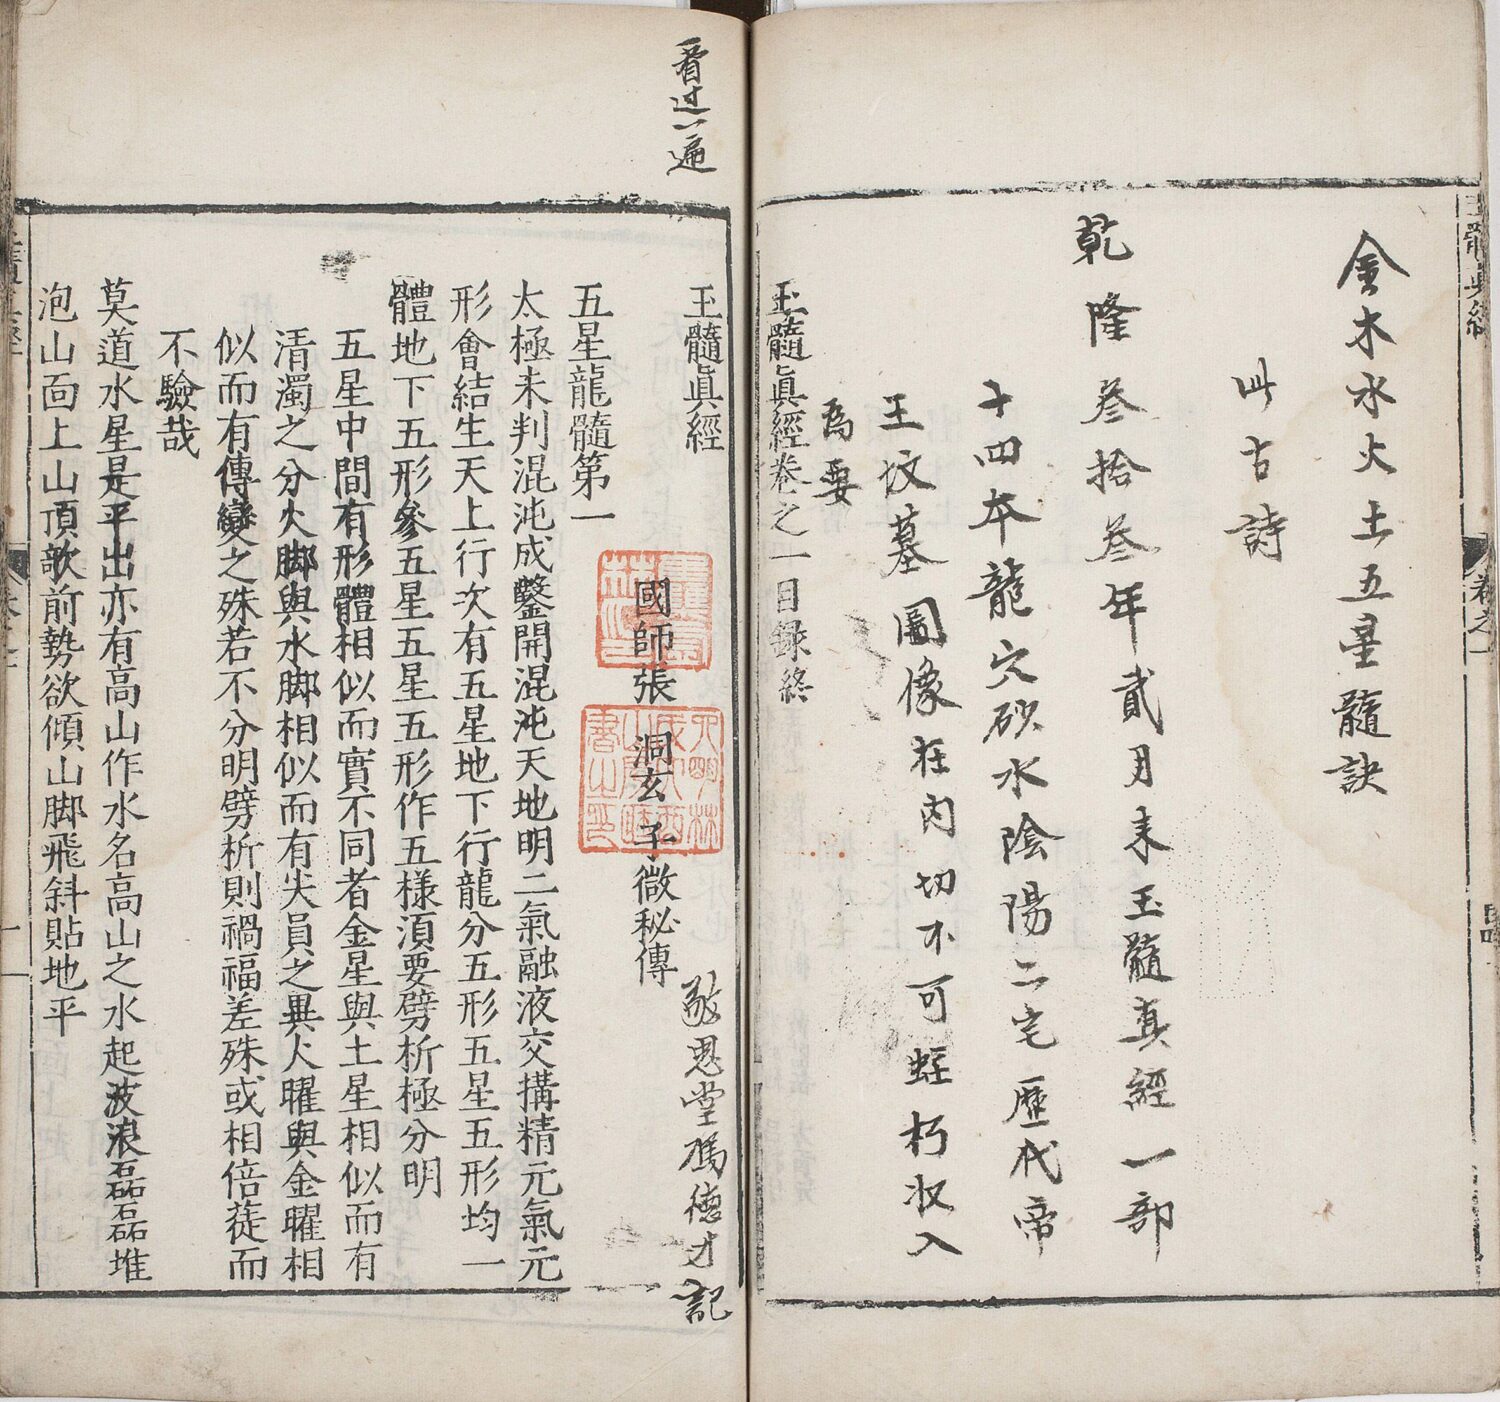 金木水火土五星髓訣
此古詩
乾隆叁拾叁年貳月未玉髓真經一部
十四本龍穴砂水陰陽二宅歷代帝
王坟墓圖像在內切不可蛀朽收入
爲要
玉髓眞經卷之一目錄終
看过一遍
玉髓眞經
國師張 洞玄 子微秘傳
敬思堂馮德才記
五星龍髓第一
太極未判混沌成鑿開混沌天地明二氣融液交搆精元氣元
形會結生天上行次有五星地下行龍分五形五星五形均一
體地下五形參五星五星五形作五樣須要劈析極分明
五星中間有形體相似而實不同者金星與土星相似而有
清濁之分火脚與水脚相似而有尖員之異火曜與金曜相
似而有傳變之殊若不分明劈析則禍福差殊或相倍蓰而
不驗哉
莫道水星是平出亦有高山作水名高山之水起波浪磊磊堆
泡山面上山頂欹前勢欲傾山脚飛斜貼地平